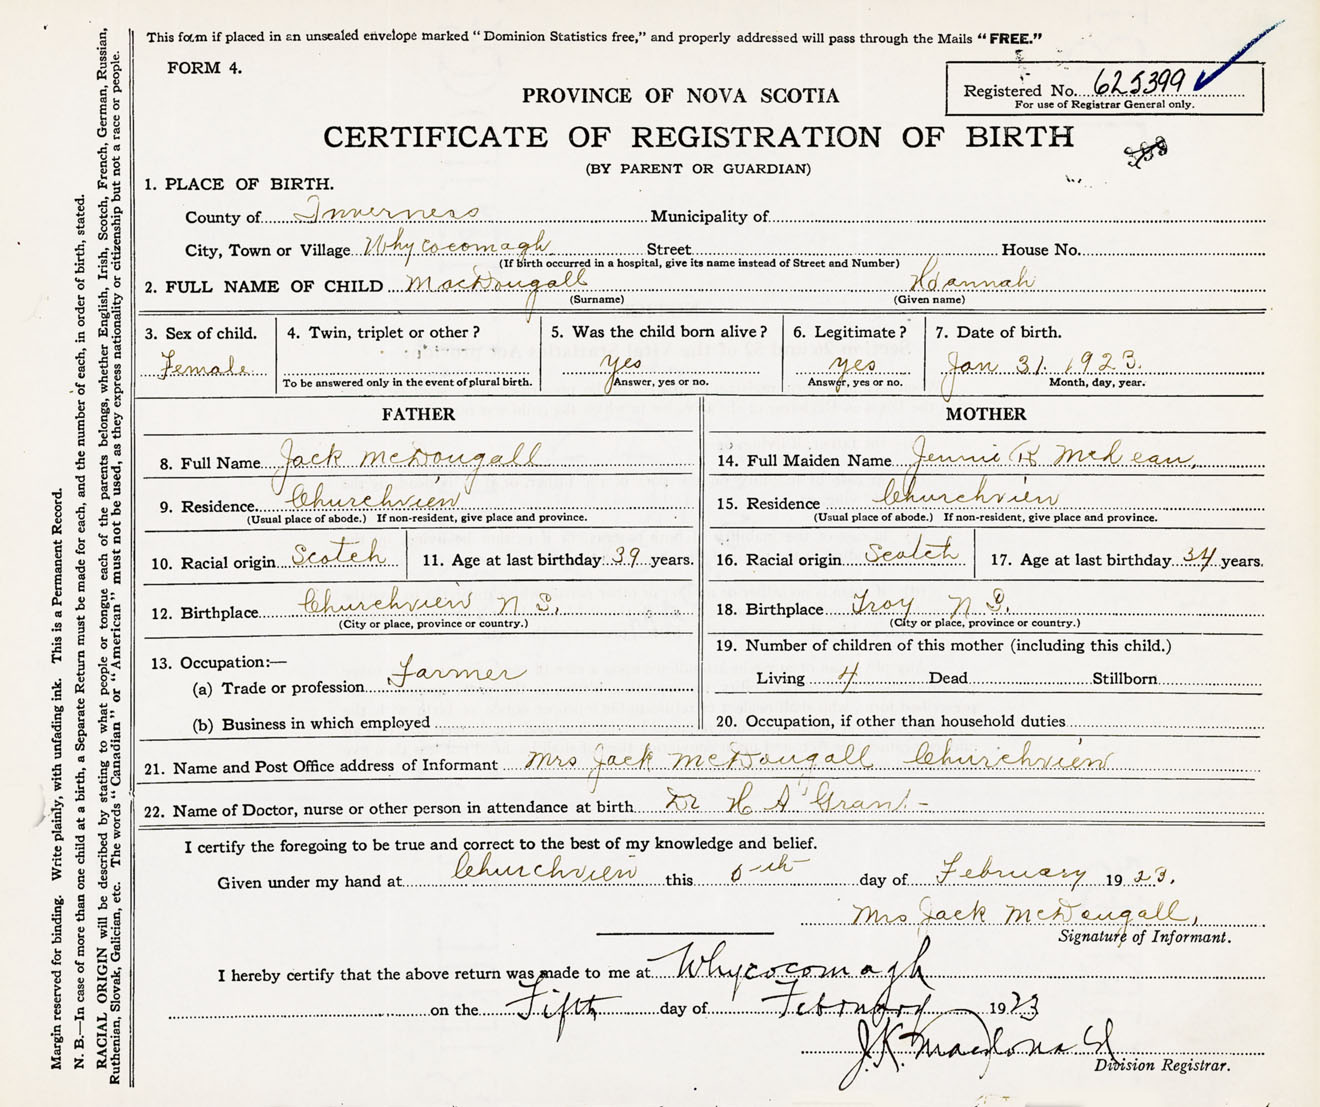 This form if placed in an unsealed envelope marked “Dominion Statistics free,” and properly addressed will pass through the Mails “FREE.”
FORM 4.
Registered No. 625399
For use of Registrar General only.
PROVINCE OF NOVA SCOTIA
CERTIFICATE OF REGISTRATION OF BIRTH
(BY PARENT OR GUARDIAN)
1. PLACE OF BIRTH.
County of Inverness Municipality of
City, Town or Village Whycocomagh Street House No.
(If birth occurred in a hospital, give its name instead of Street and Number)
2. FULL NAME OF CHILD MacDougall Hannah
(Surname) (Given name)
3. Sex of child. 4. Twin, triplet or other? 5. Was the child born alive? 6. Legitimate? 7. Date of birth.
Female yes yes Jan 31. 1923.
To be answered only in the event of plural birth. Answer, yes or no. Answer, yes or no. Month, day, year.
FATHER
8. Full Name Jack McDougall
9. Residence Churchview
(Usual place of abode.) If non-resident, give place and province.
10. Racial origin Scotch 11. Age at last birthday 39 years.
12. Birthplace Churchview N S.
(City or place, province or country.)
13. Occupation:—
(a) Trade or profession Farmer
(b) Business in which employed
MOTHER
14. Full Maiden Name Jennie K McLean,
15. Residence Churchview
(Usual place of abode.) If non-resident, give place and province.
16. Racial origin Scotch 17. Age at last birthday 34 years.
18. Birthplace Troy N S.
(City or place, province or country.)
19. Number of children of this mother (including this child.)
Living 4 Dead Stillborn
20. Occupation, if other than household duties
21. Name and Post Office address of Informant Mrs Jack McDougall Churchview
22. Name of Doctor, nurse or other person in attendance at birth Dr H A Grant -
I certify the foregoing to be true and correct to the best of my knowledge and belief.
Given under my hand at Churchview this 5th day of February 1923.
Mrs Jack McDougall,
Signature of Informant.
I hereby certify that the above return was made to me at Whycocomagh
on the Fifth day of February 1923
J. K. MacDonald
Division Registrar.
Margin reserved for binding. Write plainly, with unfading ink. This is a Permanent Record.
N. B.—In case of more than one child at a birth, a Separate Return must be made for each, and the number of each, in order of birth, stated.
RACIAL ORIGIN will be described by stating to what people or tongue each of the parents belongs, whether English, Irish, Scotch, French, German, Russian,
Ruthenian, Slovak, Galician, etc. The words “Canadian” or “American” must not be used, as they express nationality or citizenship but not a race or people.